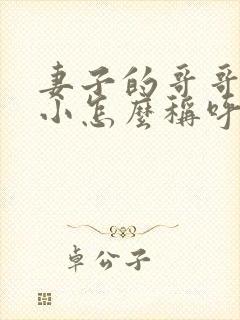 妻子的哥哥
小怎麼稱呼
卓公子